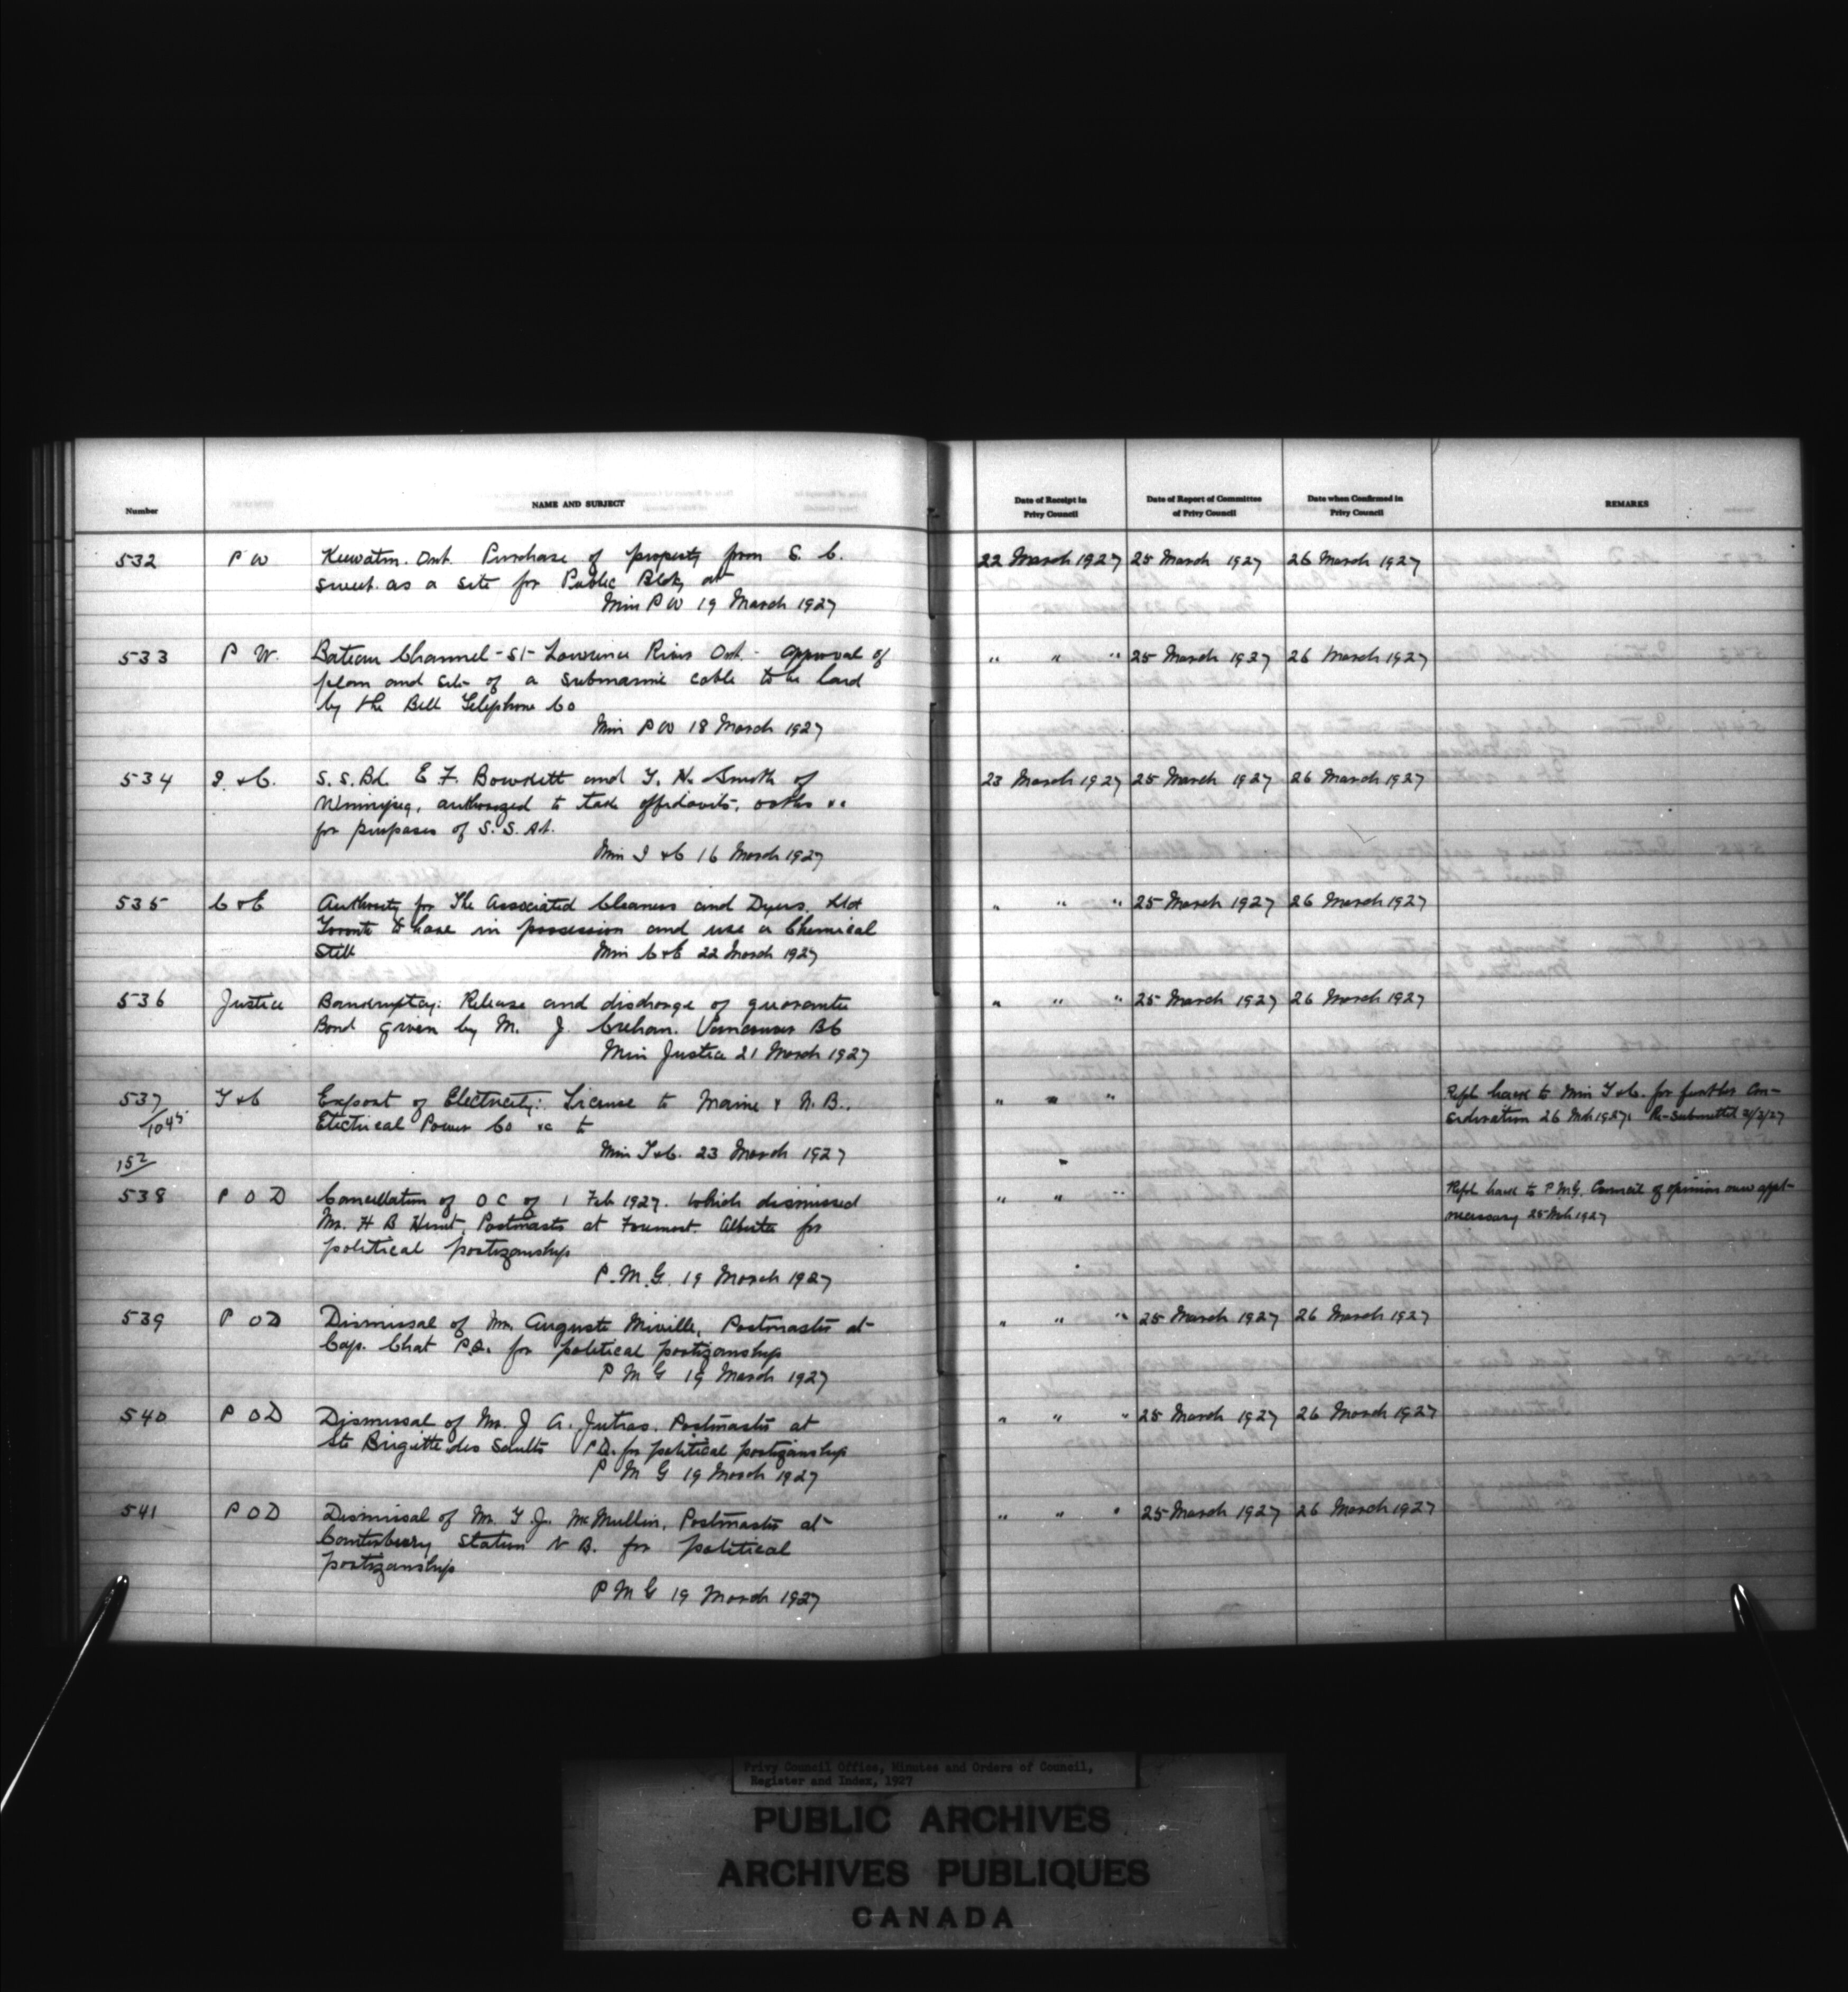 Number
NAME AND SUBJECT
Date of Receipt in
Privy Council
Date of Report of Committee
of Privy Council
Date when Confirmed in
Privy Council
REMARKS
532 P W Keewatin. Ont. Purchase of property from S. C. 22 March 1927 25 March 1927 26 March 1927
Sweet as a site for Public Bldg at
Min P W 19 March 1927
533 P W. Bateau Channel - St Lawrence River Ont. - Approval of " " " 25 March 1927 26 March 1927
plan and site of a submarine cable to be laid
by the Bell Telephone Co
Min P W 18 March 1927
534 I. & C. S. S. Bd. E F. Bowditt and T. H. Smith of 23 March 1927 25 March 1927 26 March 1927
Winnipeg, authorized to take affidavits, oaths &c
for purposes of S. S. Act.
Min I & C 16 March 1927
535 C & E Authority for The Associated Cleaners and Dyers, Ltd " " " 25 March 1927 26 March 1927
Toronto to have in possession and use a Chemical
Still Min C & E 22 March 1927
536 Justice Bankruptcy: Release and discharge of guarantee " " " 25 March 1927 26 March 1927
Bond given by M. J. Crehan. Vancouver B C
Min Justice 21 March 1927
537 T & C Export of Electricity: License to Maine & N. B. " " " Refd back to Min T & C. for further Con-
1045 Electrical Power Co &c to sideration 26 Mch 1927. Re-submitted 31/3/27
Min T & C. 23 March 1927
152
538 P O D Cancellation of O C of 1 Feb 1927. which dismissed " " " Refd back to P M G. Council of opinion new appt
Mr. H B Hunt, Postmaster at Foremost. Alberta for necessary 25 Mch 1927
political partizanship
P. M. G. 19 March 1927
539 P O D Dismissal of Mr. Auguste Miville, Postmaster at " " " 25 March 1927 26 March 1927
Cap. Chat P.Q. for political partizanship
P M G 19 March 1927
540 P O D Dismissal of Mr. J A. Jutras. Postmaster at " " " 25 March 1927 26 March 1927
Ste Brigitte des Saults P.Q. for political partizanship
P M G 19 March 1927
541 P O D Dismissal of Mr. T J. McMullin, Postmaster at " " " 25 March 1927 26 March 1927
Canterbury Station N B. for political
partizanship
P M G 19 March 1927
Privy Council Office, Minutes and Orders of Council,
Register and Index, 1927
PUBLIC ARCHIVES
ARCHIVES PUBLIQUES
CANADA